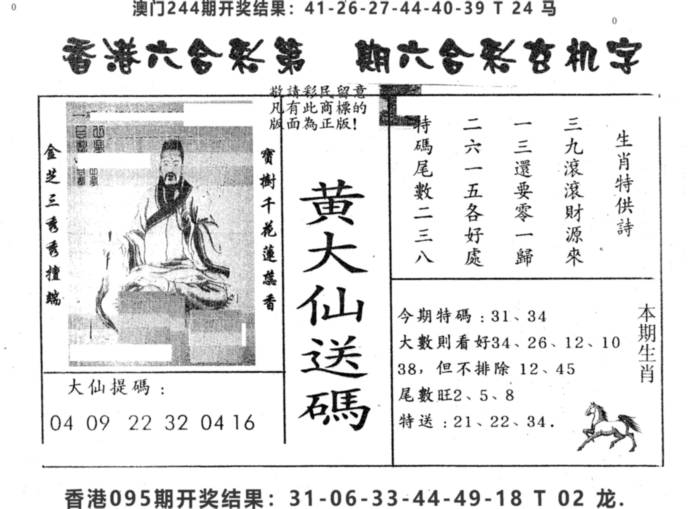 澳门244期开奖结果：41-26-27-44-40-39 T 24 马
香港六合彩第 期六合彩玄机字
敬請彩民留意
凡有此商標的
版面為正版!
金芝三秀秀擅瑞
寶樹千花蓮蕊香
黄大仙送碼
生肖特供詩
三九滾滾財源來
一三還要零一歸
二六一五各好處
特碼尾數二三八
本期生肖
今期特碼：31、34
大數則看好34、26、12、10
38，但不排除 12、45
尾數旺2、5、8
特送：21、22、34.
大仙提碼：
04 09 22 32 04 16
香港095期开奖结果：31-06-33-44-49-18 T 02 龙.